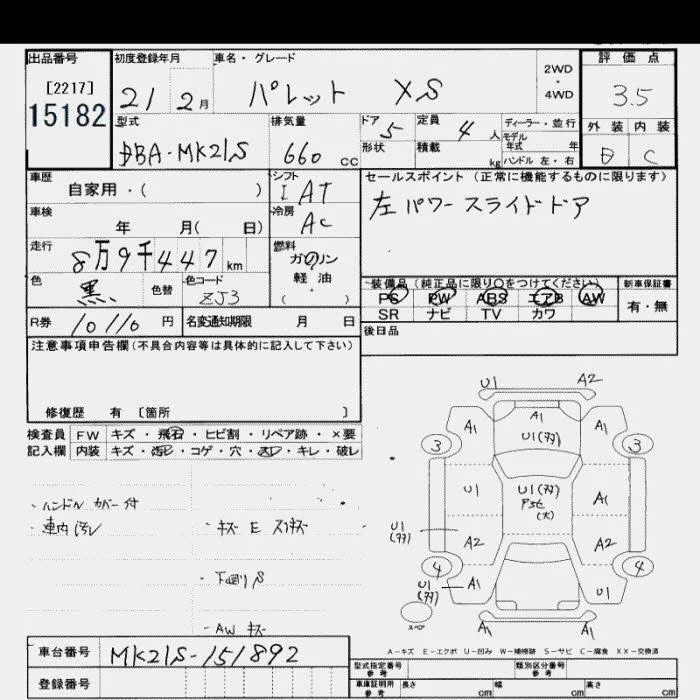 出品番号 初度登録年月 車名・グレード 2WD・4WD 評価点
[2217] 15182 21 2月 パレット XS 3.5
型式 排気量 ドア 5 定員 4人 ディーラー・並行 外装 内装
DBA-MK21S 660cc 形状 積載 kg モデル年式 年 ハンドル 左・右 B C
車歴 自家用・( ) シフト I AT セールスポイント(正常に機能するものに限ります)
車検 年 月( 日) 冷房 AC 左パワースライドドア
走行 8万9千447km 燃料 ガソリン 軽油 ( )
色 黒 色替 色コード ZJ3 装備品(純正品に限り○をつけてください) 新車保証書
PS PW ABS エアB AW 有・無
R券 10110円 名変通知期限 月 日 SR ナビ TV カワ
注意事項申告欄(不具合内容等は具体的に記入して下さい) 後日品
修復歴 有 [箇所 ]
検査員 FW キズ・飛石・ヒビ割・リペア跡・×要
記入欄 内装 キズ・汚レ・コゲ・穴・スレ・キレ・破レ
・ハンドル カバー付
・車内汚レ ・キズ E スリキズ
・下回りS
・AW キズ
U1 A2
A1 A1 A1
3 U1(タタ) 3
U1 U1(タタ) A1
(大)
U1(タタ) A2 A2
4 4
U1(タタ) A1 U1
スペア A1 A1
A-キズ E-エクボ U-凹み W-補修跡 S-サビ C-腐食 XX-交換済
車台番号 MK21S-151892 型式指定番号 参考 類別区分番号 参考
登録番号 車庫証明用 参考 長さ cm 幅 cm 高さ cm